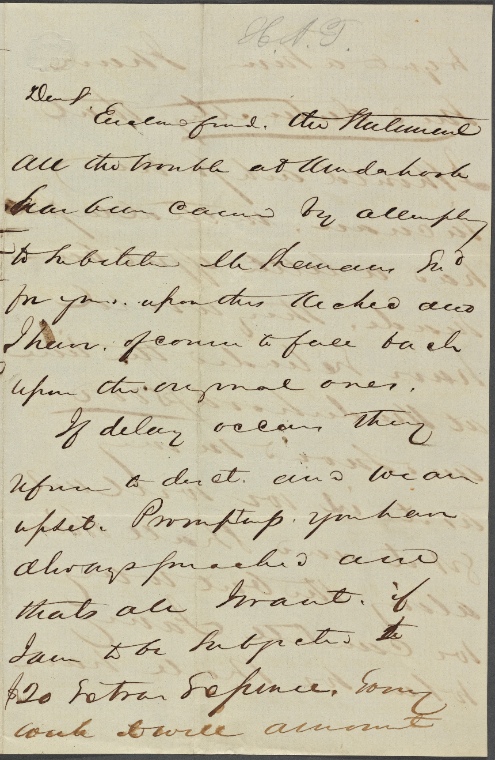 H.A.T.
Dear S
Enclosed find. the Statement
All the trouble at Kinderhook
has been caused by attempting
to substitute Mr Shermans End
for yrs. upon this Kecked and
I have. of course to fall back
upon the original ones.
If delay occurs they
refuse to disct. and we are
upset. Promptness. you have
always preached and
thats all I want. if
I am to be subjected to
$20 Extra Expense. Every
it will amount